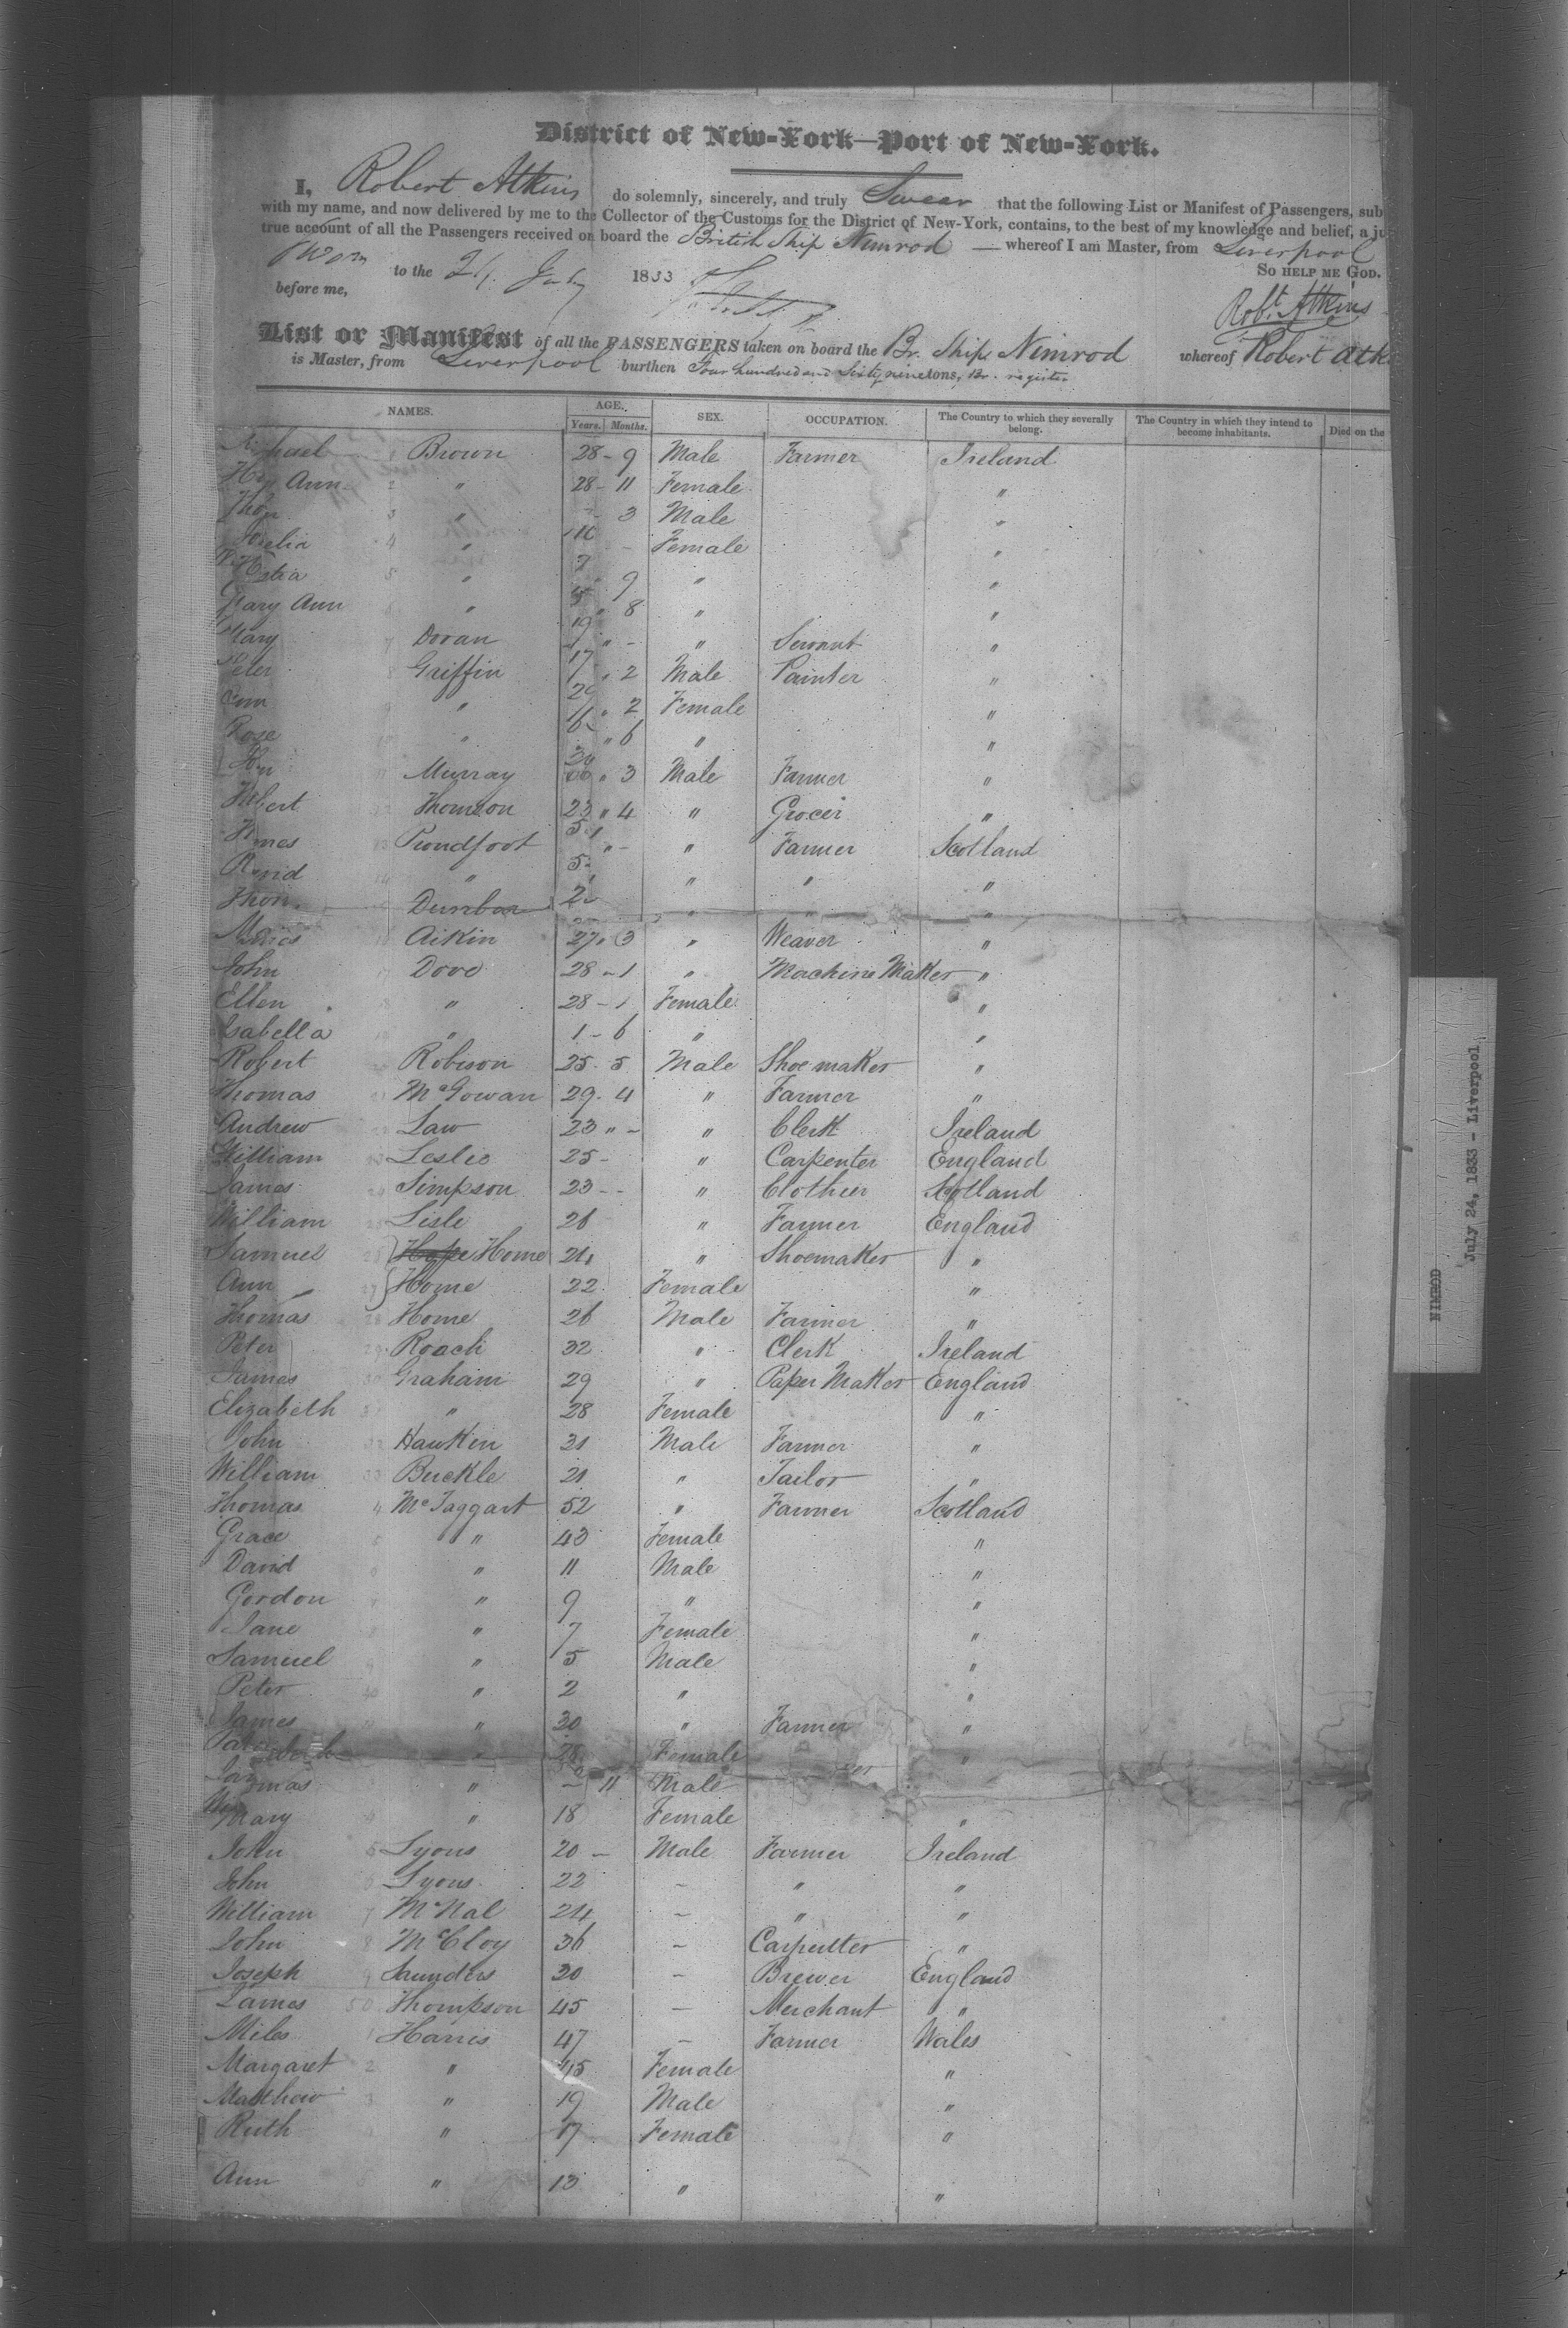 District of New-York—Port of New-York.
I, Robert Atkins do solemnly, sincerely, and truly Swear that the following List or Manifest of Passengers, sub
with my name, and now delivered by me to the Collector of the Customs for the District of New-York, contains, to the best of my knowledge and belief, a ju
true account of all the Passengers received on board the British Ship Nimrod — whereof I am Master, from Liverpool
Sworn to the 24 July 1833 So help me God.
before me,
Robt. Atkins
List or Manifest of all the PASSENGERS taken on board the Br. Ship Nimrod whereof Robert Atk
is Master, from Liverpool burthen Four hundred and Sixty nine tons, Br. register
NAMES. AGE. SEX. OCCUPATION. The Country to which they severally belong. The Country in which they intend to become inhabitants. Died on the
Years. Months.
1 Brown 28 - 9 Male Farmer Ireland
Ann 2 " 28 - 11 Female "
3 " 3 Male "
4 " Female "
5 " 9 " "
Mary Ann " " 8 " "
Mary 7 Doran 19 " - " Servant "
Peter 8 Griffin 17 " 2 Male Painter "
Ann " " 2 Female "
Rose " " 6 " "
11 Murray " 3 Male Farmer "
Thomson 23 " 4 " Grocer "
13 Proudfoot " - " Farmer Scotland
" " " "
Dunbar " " "
Aikin 27 " 3 " Weaver "
John 17 Dove 28 - 1 " Machine Maker "
Ellen 18 " 28 - 1 Female "
Isabella " 1 - 6 " "
Robert Robison 25 - 5 Male Shoe maker "
Thomas McGowan 29 - 4 " Farmer "
Andrew Law 23 " - " Clerk Ireland
William Leslie 25 - " Carpenter England
James Simpson 23 - - " Clothier Scotland
William Lisle 26 " Farmer England
Samuel Hope Home 24 " Shoemaker "
Ann 27 Home 22 Female "
Thomas 28 Home 26 Male Farmer "
Peter 29 Roach 32 " Clerk Ireland
James 30 Graham 29 " Paper Maker England
Elizabeth " 28 Female "
John Hawkin 31 Male Farmer "
William 33 Buckle 21 " Tailor "
Thomas 4 McTaggart 52 " Farmer Scotland
Grace 5 " 43 Female "
David " 11 Male "
Gordon " 9 " "
Jane " 7 Female "
Samuel " 5 Male "
Peter 40 " 2 " "
James " 30 " Farmer "
" 28 Female "
" - 11 Male
Mary " 18 Female "
John 5 Lyons 20 - Male Farmer Ireland
John 6 Lyons 22 - " "
William 7 McNal 24 - " "
John 8 McCloy 36 - Carpenter "
Joseph 9 Saunders 30 - Brewer England
James 50 Thompson 45 - Merchant "
Miles 1 Harris 47 - Farmer Wales
Margaret 2 " 45 Female "
Matthew 3 " 19 Male "
Ruth " 17 Female "
Ann " 13 " "
NIMROD
July 24, 1833 - Liverpool